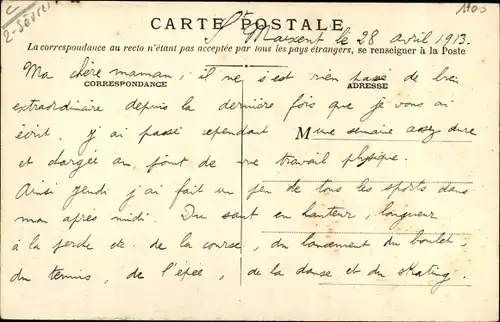 1100
2-Sèvres
CARTE POSTALE
St Maixent le 28 avril 1913.
La correspondance au recto n'étant pas acceptée par tous les pays étrangers, se renseigner à la Poste
Ma chère maman, il ne s'est rien passé de bien
CORRESPONDANCE
ADRESSE
extraordinaire depuis la dernière fois que je vous ai
écrit. j'y ai passé cependant M une semaine assez dure
et chargée au point de vue travail physique.
Ainsi jeudi j'ai fait un peu de tous les sports dans
mon après midi. Du saut en hauteur, longueur
à la perche etc. de la course, du lancement du boulet,
du tennis, de l'épée, de la danse et du skating.